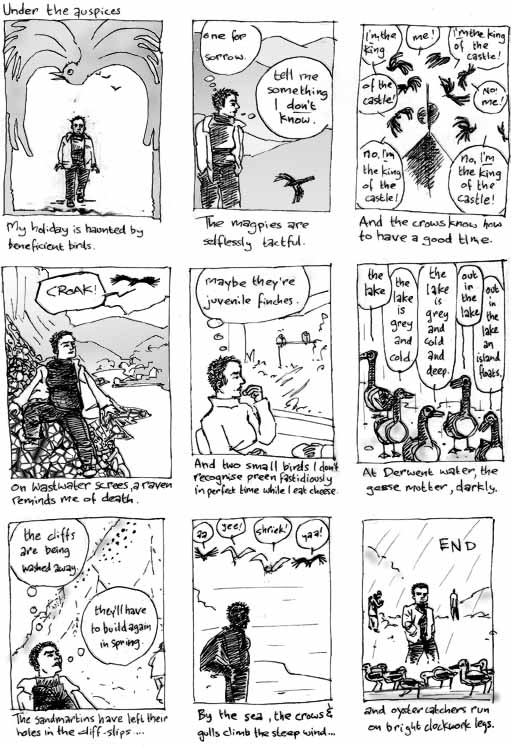 Under the auspices
My holiday is haunted by
beneficient birds.
one for
sorrow.
tell me
something
I don't
know.
The magpies are
selflessly tactful.
I'm the
king
of the
castle!
me!
I'm the king
of the
castle!
No!
me!
No, I'm
the king
of the
castle!
No, I'm
the king
of the
castle!
And the crows know how
to have a good time.
CROAK!
On Wastwater screes, a raven
reminds me of death.
maybe they're
juvenile finches.
And two small birds I don't
recognise preen fastidiously
in perfect time while I eat cheese.
the
lake
the
lake
is
grey
and
cold
the
lake
is
grey
and
cold
and
deep.
out
in the
lake
out
in the
lake
an
island
floats.
At Derwent water, the
geese mutter, darkly.
the cliffs
are being
washed away.
they'll have
to build again
in spring.
The sandmartins have left their
holes in the cliff-slips...
aa
yee!
shriek!
yaa!
By the sea, the crows &
gulls climb the steep wind...
END
and oystercatchers run
on bright clockwork legs.